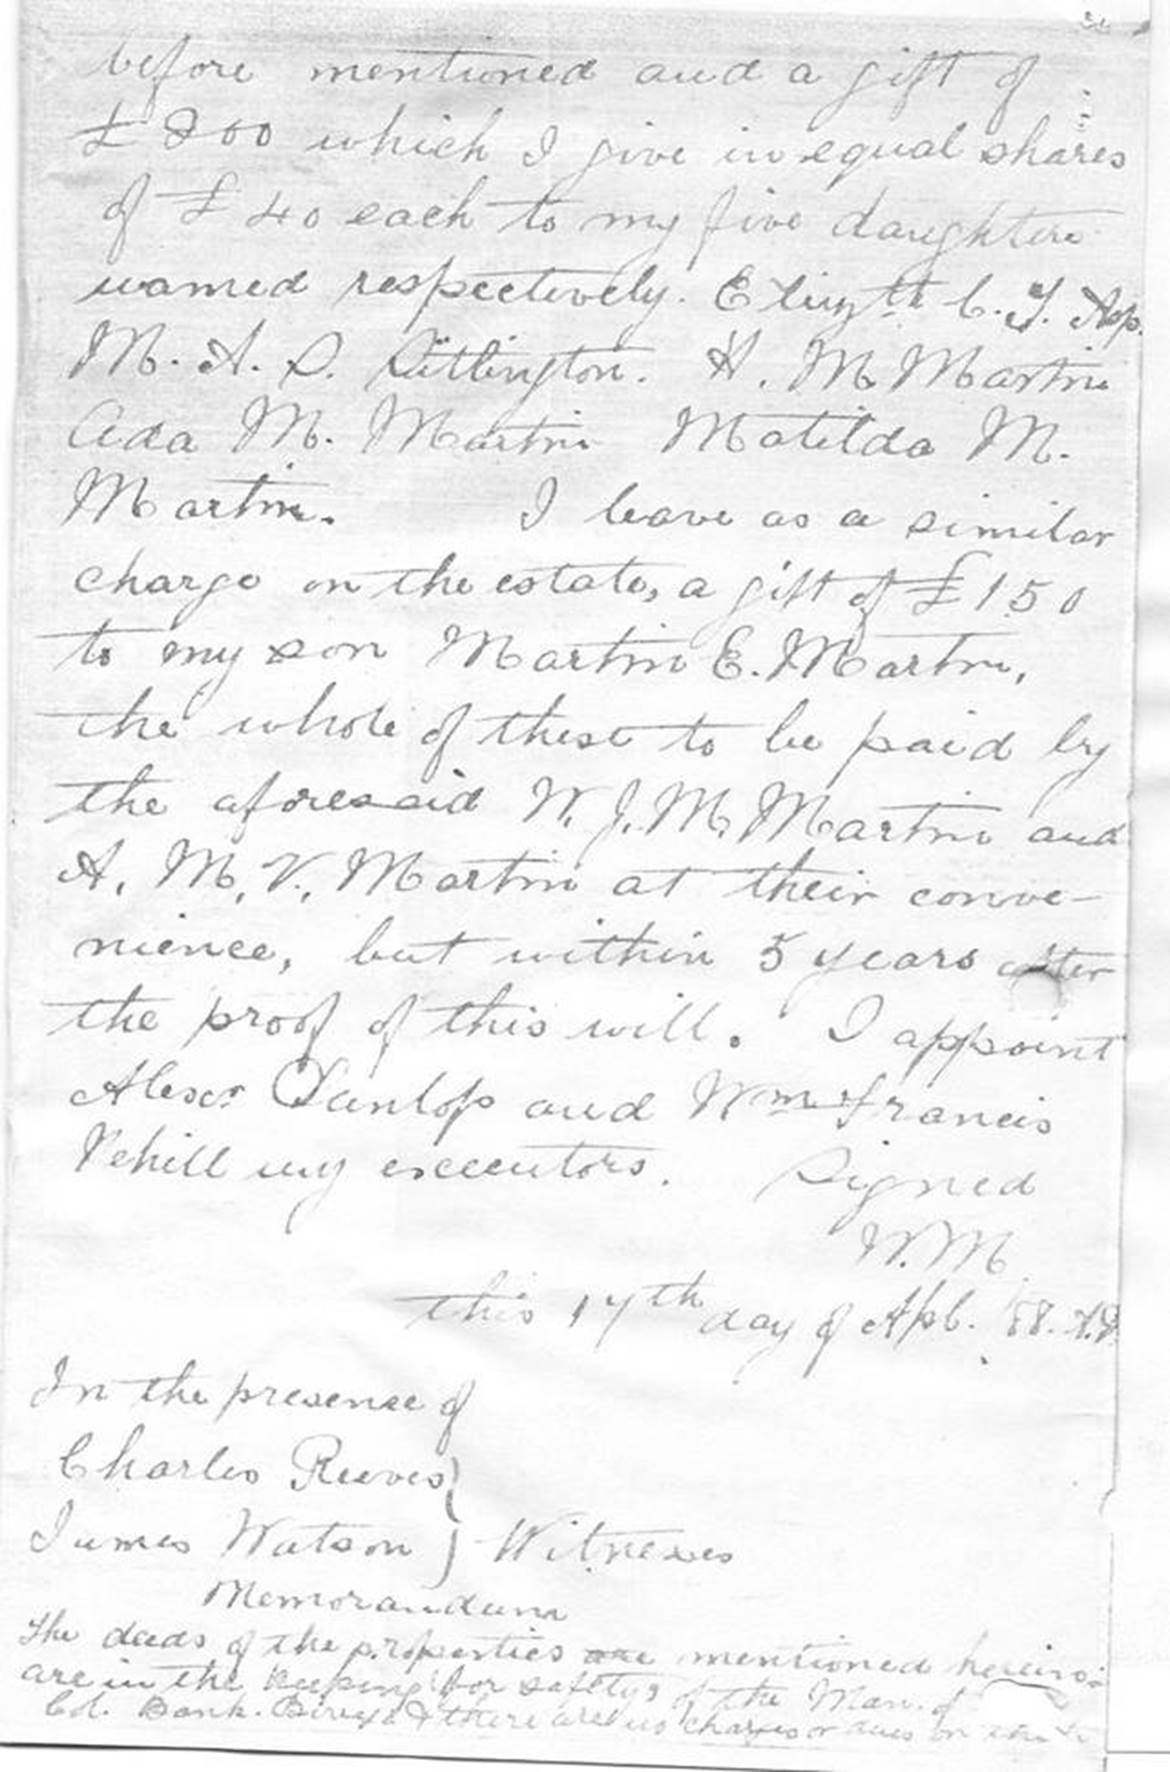 before mentioned and a gift of
£200 which I give in equal shares
of £40 each to my five daughters
named respectively. Elizth C. J. Asp.
M. A. S. Sittlington. H. M. Martin
Ada M. Martin Matilda M.
Martin. I leave as a similar
charge on the estate, a gift of £150
to my son Martin E. Martin,
the whole of these to be paid by
the aforesaid W. J. M. Martin and
A. M. V. Martin at their conve-
nience, but within 5 years after
the proof of this will. I appoint
Alexr Dunlop and Wm Francis
Vehill my executors. Signed
W. M.
this 17th day of Apl. '88. A.D
In the presence of
Charles Reeves
James Watson } Witnesses
Memorandum
The deeds of the properties are mentioned herein
are in the keeping for safety, of the Man. of
Col. Bank. & there are no charges or dues on